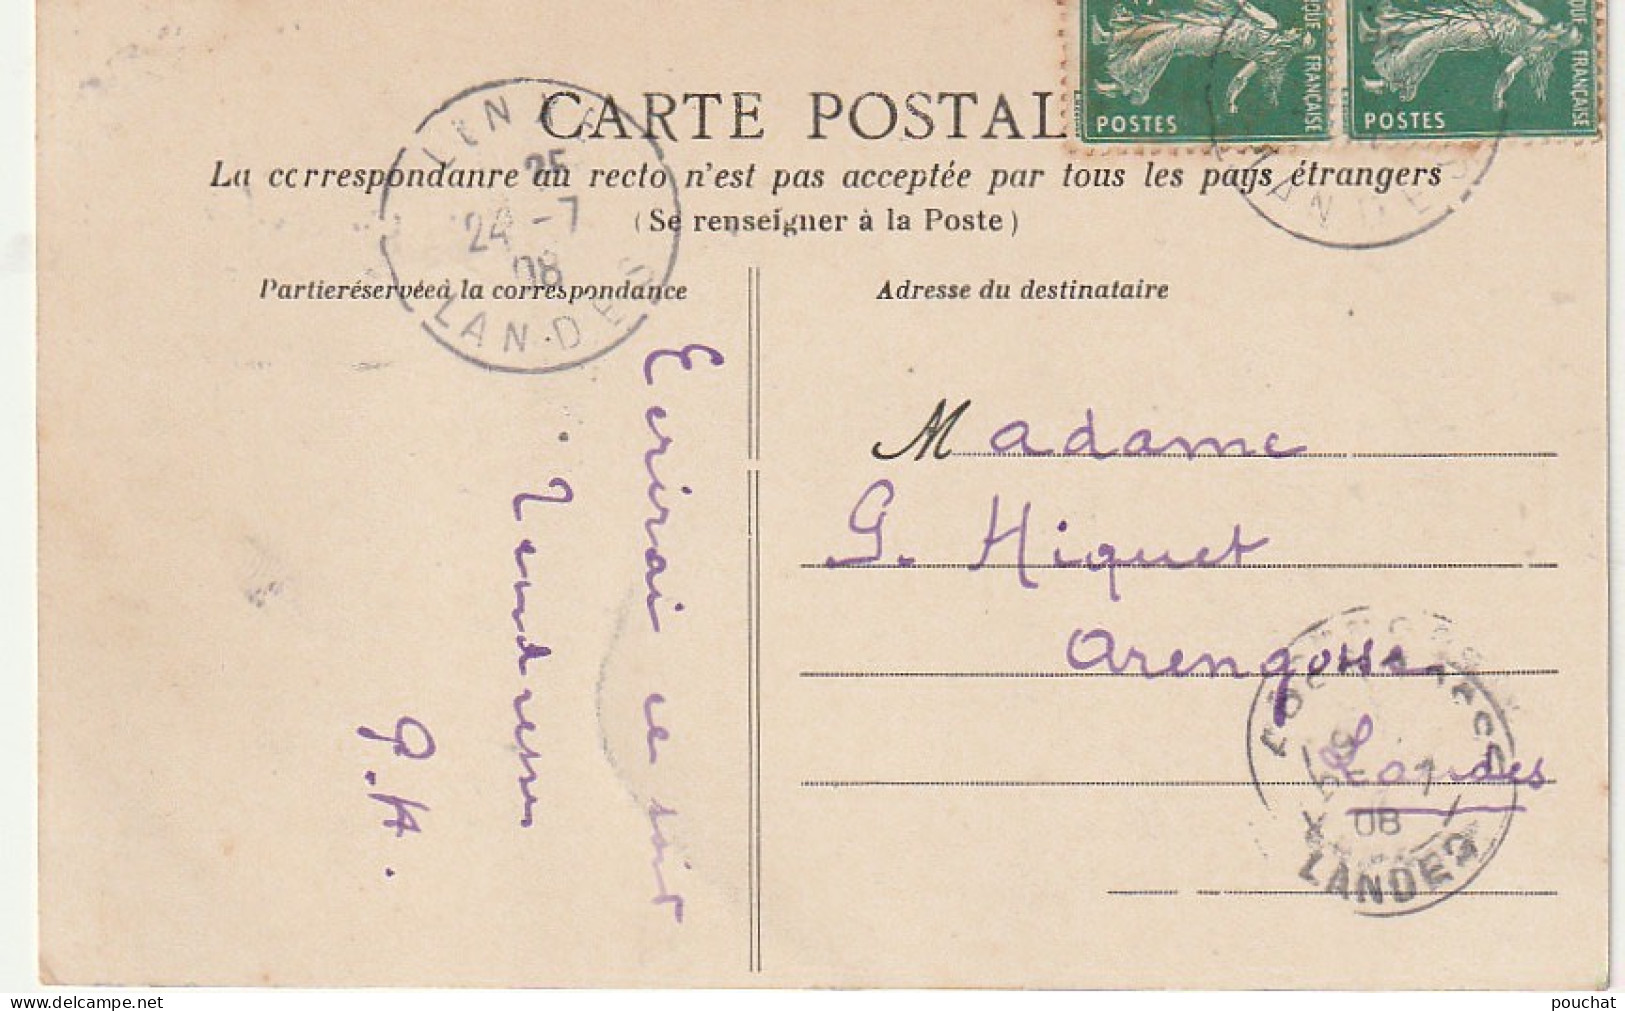 CARTE POSTAL
POSTES
FRANÇAISE
POSTES
FRANÇAISE
La correspondanre au recto n'est pas acceptée par tous les pays étrangers
(Se renseigner à la Poste)
24 -7
08
LANDES
LANDES
Partieréservéeà la correspondance
Adresse du destinataire
Ecrirai ce soir
Tendresses
G. H.
Madame
G. Hiquet
Arengosse
Landes
08
LANDES
www.delcampe.net
pouchat